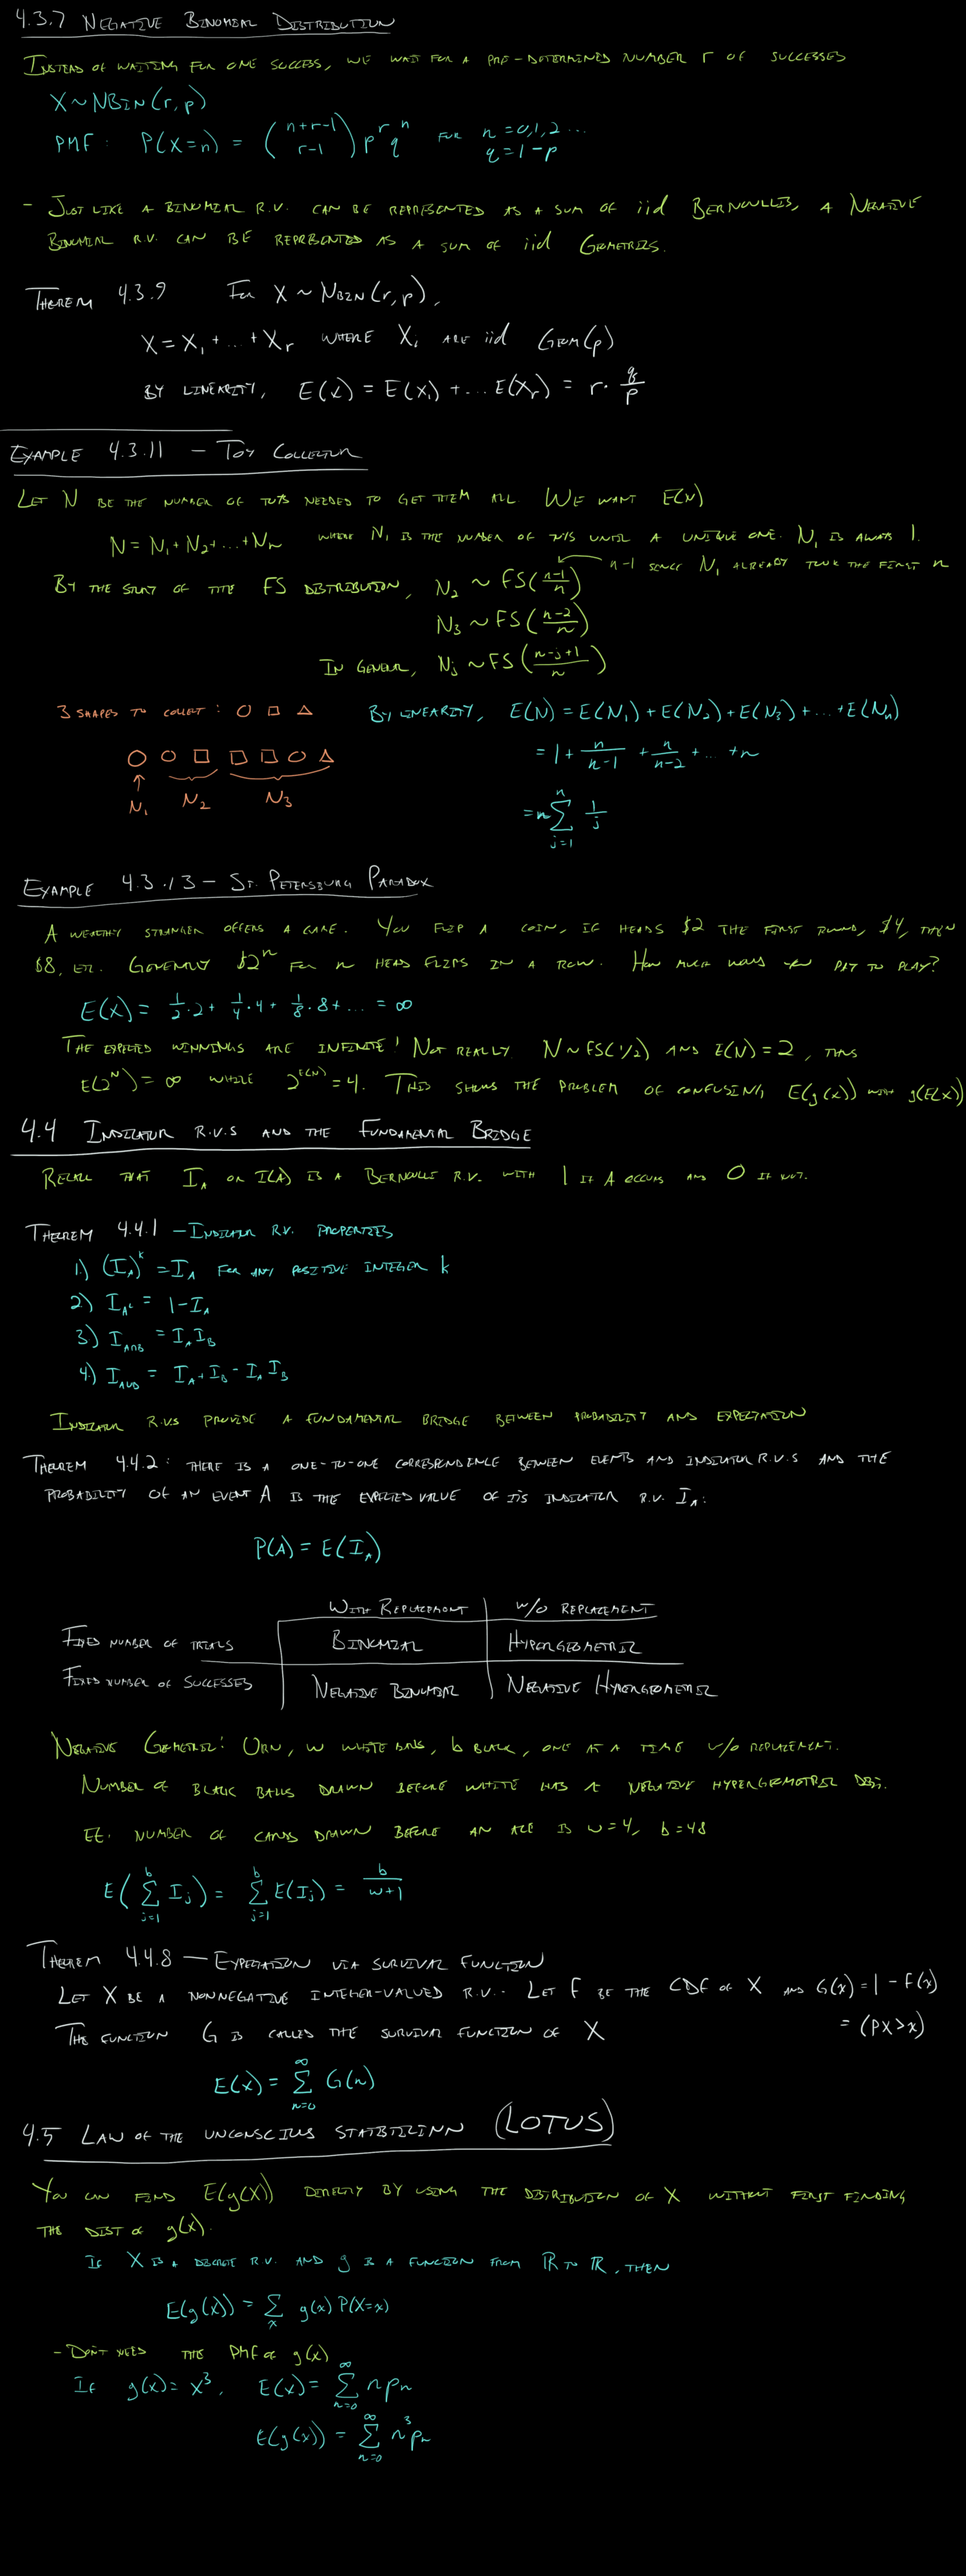 4.3.7 NEGATIVE BINOMIAL DISTRIBUTION
INSTEAD OF WAITING FOR ONE SUCCESS, WE WAIT FOR A PRE-DETERMINED NUMBER r OF SUCCESSES
X ~ NBIN(r, p)
PMF: P(X=n) = (n+r-1 r-1) p^r q^n FOR n = 0,1,2 ...
q = 1-p
- JUST LIKE A BINOMIAL R.V. CAN BE REPRESENTED AS A SUM OF iid BERNOULLIS, A NEGATIVE
BINOMIAL R.V. CAN BE REPRESENTED AS A SUM OF iid GEOMETRICS.
THEOREM 4.3.9 FOR X ~ NBIN(r, p),
X = X₁ + ... + Xᵣ WHERE Xᵢ ARE iid GEOM(p)
BY LINEARITY, E(X) = E(X₁) + ... E(Xᵣ) = r · q/p
EXAMPLE 4.3.11 - TOY COLLECTOR
LET N BE THE NUMBER OF TOYS NEEDED TO GET THEM ALL. WE WANT E(N)
N = N₁ + N₂ + ... + Nₙ WHERE N₁ IS THE NUMBER OF TOYS UNTIL A UNIQUE ONE. N₁ IS ALWAYS 1.
n-1 SINCE N₁ ALREADY TOOK THE FIRST n
BY THE STORY OF THE FS DISTRIBUTION, N₂ ~ FS((n-1)/n)
N₃ ~ FS((n-2)/n)
IN GENERAL, Nⱼ ~ FS((n-j+1)/n)
3 SHAPES TO COLLECT: ○ □ △ BY LINEARITY, E(N) = E(N₁) + E(N₂) + E(N₃) + ... + E(Nₙ)
= 1 + n/(n-1) + n/(n-2) + ... + n
○ ○ □ □ □ ○ △
N₁ N₂ N₃
= n ∑_{j=1}^{n} 1/j
EXAMPLE 4.3.13 - ST. PETERSBURG PARADOX
A WEALTHY STRANGER OFFERS A GAME. YOU FLIP A COIN, IF HEADS $2 THE FIRST ROUND, $4, THEN
$8, ETC. GENERALLY $2^n FOR n HEAD FLIPS IN A ROW. HOW MUCH WOULD YOU PAY TO PLAY?
E(X) = 1/2 · 2 + 1/4 · 4 + 1/8 · 8 + ... = ∞
THE EXPECTED WINNINGS ARE INFINITE! NOT REALLY N ~ FS(1/2) AND E(N) = 2, THUS
E(2^N) = ∞ WHILE 2^E(N) = 4. THIS SHOWS THE PROBLEM OF CONFUSING E(g(X)) WITH g(E(X))
4.4 INDICATOR R.V.S AND THE FUNDAMENTAL BRIDGE
RECALL THAT I_A OR I(A) IS A BERNOULLI R.V. WITH 1 IF A OCCURS AND 0 IF NOT.
THEOREM 4.4.1 - INDICATOR R.V. PROPERTIES
1.) (I_A)^k = I_A FOR ANY POSITIVE INTEGER k
2) I_{A^c} = 1 - I_A
3) I_{A∩B} = I_A I_B
4.) I_{A∪B} = I_A + I_B - I_A I_B
INDICATOR R.V.S PROVIDE A FUNDAMENTAL BRIDGE BETWEEN PROBABILITY AND EXPECTATION
THEOREM 4.4.2: THERE IS A ONE-TO-ONE CORRESPONDENCE BETWEEN EVENTS AND INDICATOR R.V.S AND THE
PROBABILITY OF AN EVENT A IS THE EXPECTED VALUE OF ITS INDICATOR R.V. I_A:
P(A) = E(I_A)
WITH REPLACEMENT W/O REPLACEMENT
FIXED NUMBER OF TRIALS BINOMIAL HYPERGEOMETRIC
FIXED NUMBER OF SUCCESSES NEGATIVE BINOMIAL NEGATIVE HYPERGEOMETRIC
NEGATIVE GEOMETRIC: URN, w WHITE BALLS, b BLACK, ONE AT A TIME W/O REPLACEMENT.
NUMBER OF BLACK BALLS DRAWN BEFORE WHITE HAS A NEGATIVE HYPERGEOMETRIC DIST.
EX: NUMBER OF CARDS DRAWN BEFORE AN ACE IS w=4, b=48
E(∑_{j=1}^{b} Iⱼ) = ∑_{j=1}^{b} E(Iⱼ) = b/(w+1)
THEOREM 4.4.8 - EXPECTATION VIA SURVIVAL FUNCTION
LET X BE A NONNEGATIVE INTEGER-VALUED R.V.. LET F BE THE CDF OF X AND G(x) = 1 - F(x)
= (PX > x)
THE FUNCTION G IS CALLED THE SURVIVAL FUNCTION OF X
E(X) = ∑_{n=0}^{∞} G(n)
4.5 LAW OF THE UNCONSCIOUS STATISTICIAN (LOTUS)
YOU CAN FIND E(g(X)) DIRECTLY BY USING THE DISTRIBUTION OF X WITHOUT FIRST FINDING
THE DIST OF g(X).
IF X IS A DISCRETE R.V. AND g IS A FUNCTION FROM ℝ TO ℝ, THEN
E(g(X)) = ∑_x g(x) P(X=x)
- DON'T NEED THE PMF OF g(x)
IF g(x) = X³, E(X) = ∑_{n=0}^{∞} n pₙ
E(g(x)) = ∑_{n=0}^{∞} n³ pₙ